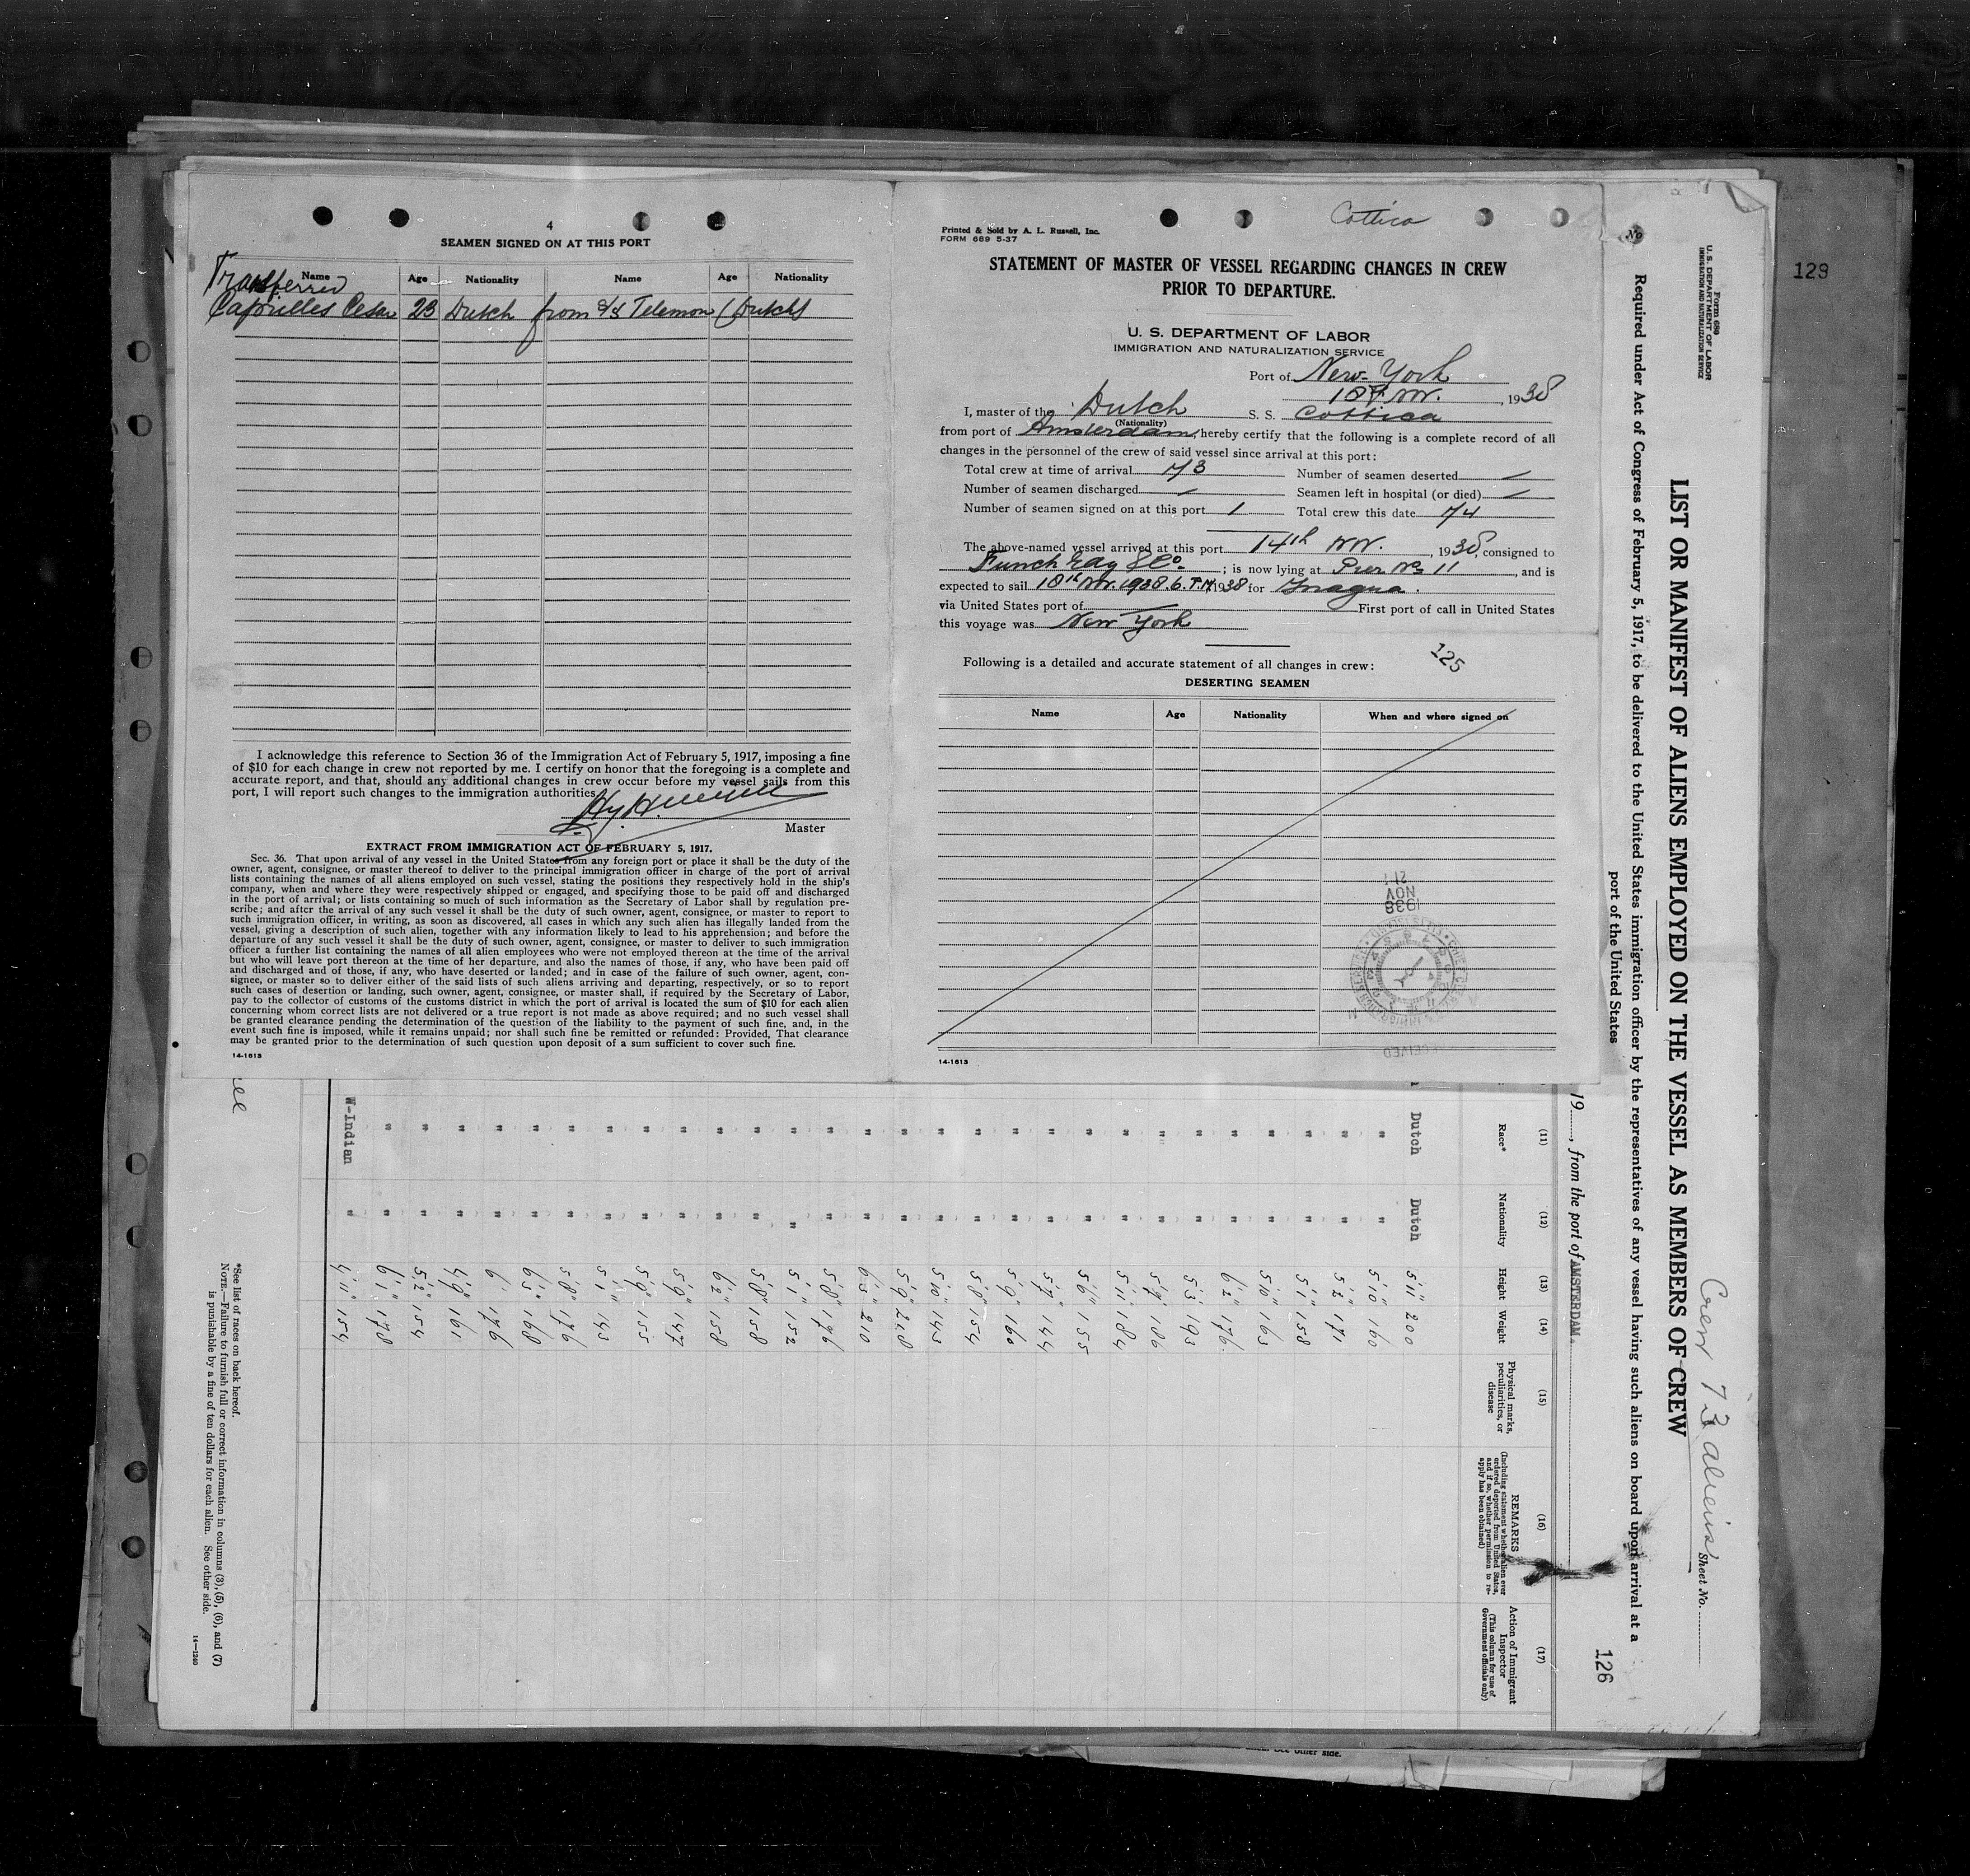 4
SEAMEN SIGNED ON AT THIS PORT
Name Age Nationality Name Age Nationality
Transferred
Caprielles Cesar 23 Dutch from S/S Telemon (Dutch)
I acknowledge this reference to Section 36 of the Immigration Act of February 5, 1917, imposing a fine
of $10 for each change in crew not reported by me. I certify on honor that the foregoing is a complete and
accurate report, and that, should any additional changes in crew occur before my vessel sails from this
port, I will report such changes to the immigration authorities.
Master
EXTRACT FROM IMMIGRATION ACT OF FEBRUARY 5, 1917.
Sec. 36. That upon arrival of any vessel in the United States from any foreign port or place it shall be the duty of the
owner, agent, consignee, or master thereof to deliver to the principal immigration officer in charge of the port of arrival
lists containing the names of all aliens employed on such vessel, stating the positions they respectively hold in the ship's
company, when and where they were respectively shipped or engaged, and specifying those to be paid off and discharged
in the port of arrival; or lists containing so much of such information as the Secretary of Labor shall by regulation pre-
scribe; and after the arrival of any such vessel it shall be the duty of such owner, agent, consignee, or master to report to
such immigration officer, in writing, as soon as discovered, all cases in which any such alien has illegally landed from the
vessel, giving a description of such alien, together with any information likely to lead to his apprehension; and before the
departure of any such vessel it shall be the duty of such owner, agent, consignee, or master to deliver to such immigration
officer a further list containing the names of all alien employees who were not employed thereon at the time of the arrival
but who will leave port thereon at the time of her departure, and also the names of those, if any, who have been paid off
and discharged and of those, if any, who have deserted or landed; and in case of the failure of such owner, agent, con-
signee, or master so to deliver either of the said lists of such aliens arriving and departing, respectively, or so to report
such cases of desertion or landing, such owner, agent, consignee, or master shall, if required by the Secretary of Labor,
pay to the collector of customs of the customs district in which the port of arrival is located the sum of $10 for each alien
concerning whom correct lists are not delivered or a true report is not made as above required; and no such vessel shall
be granted clearance pending the determination of the question of the liability to the payment of such fine, and, in the
event such fine is imposed, while it remains unpaid; nor shall such fine be remitted or refunded: Provided, That clearance
may be granted prior to the determination of such question upon deposit of a sum sufficient to cover such fine.
14-1613
Cottica
Printed & Sold by A. L. Russell, Inc.
FORM 689 5-37
STATEMENT OF MASTER OF VESSEL REGARDING CHANGES IN CREW
PRIOR TO DEPARTURE.
U. S. DEPARTMENT OF LABOR
IMMIGRATION AND NATURALIZATION SERVICE
Port of New-York
, 1938
I, master of the Dutch S. S. Cottica
(Nationality)
from port of Amsterdam, hereby certify that the following is a complete record of all
changes in the personnel of the crew of said vessel since arrival at this port:
Total crew at time of arrival 73 Number of seamen deserted —
Number of seamen discharged — Seamen left in hospital (or died) —
Number of seamen signed on at this port 1 Total crew this date 74
The above-named vessel arrived at this port 14th Nov. , 1938, consigned to
Funch Edy & Co. ; is now lying at Pier No 11 , and is
expected to sail 18th Nov. 1938. 6. P.M. 1938 for Inagua.
via United States port of — First port of call in United States
this voyage was New York
125
Following is a detailed and accurate statement of all changes in crew:
DESERTING SEAMEN
Name Age Nationality When and where signed on
1938
NOV
RECEIVED
14-1613
123
No
Form 689
U. S. DEPARTMENT OF LABOR
IMMIGRATION AND NATURALIZATION SERVICE
Crew 73 aliens Sheet No.
LIST OR MANIFEST OF ALIENS EMPLOYED ON THE VESSEL AS MEMBERS OF CREW
Required under Act of Congress of February 5, 1917, to be delivered to the United States immigration officer by the representatives of any vessel having such aliens on board upon arrival at a
port of the United States
126
19 , from the port of AMSTERDAM.
(11) (12) (13) (14) (15) (16) (17)
Race* Nationality Height Weight Physical marks, peculiarities, or disease REMARKS (Including statement whether alien ever ordered deported from United States, and if so, whether permission to re-apply has been obtained) Action of Immigrant Inspector (This column for use of Government officials only)
Dutch Dutch 5'11" 200
" " 5'10" 160
" " 5'2" 171
" " 5'1" 158
" " 5'10" 163
" " 6'2" 176
" " 5'3" 193
" " 5'7" 186
" " 5'11" 184
" " 5'6" 155
" " 5'7" 144
" " 5'9" 160
" " 5'8" 154
" " 5'10" 143
" " 5'9" 218
" " 6'3" 210
" " 5'8" 176
" " 5'1" 152
" " 5'8" 158
" " 6'2" 158
" " 5'9" 147
" " 5'9" 155
" " 5'1" 143
" " 5'8" 176
" " 6'5" 168
" " 6' 176
" " 4'9" 161
" " 5'2" 154
" " 6'1" 178
W-Indian " 4'11" 154
*See list of races on back hereof.
NOTE.—Failure to furnish full or correct information in columns (3), (5), (6), and (7)
is punishable by a fine of ten dollars for each alien. See other side.
14—1240
See other side.